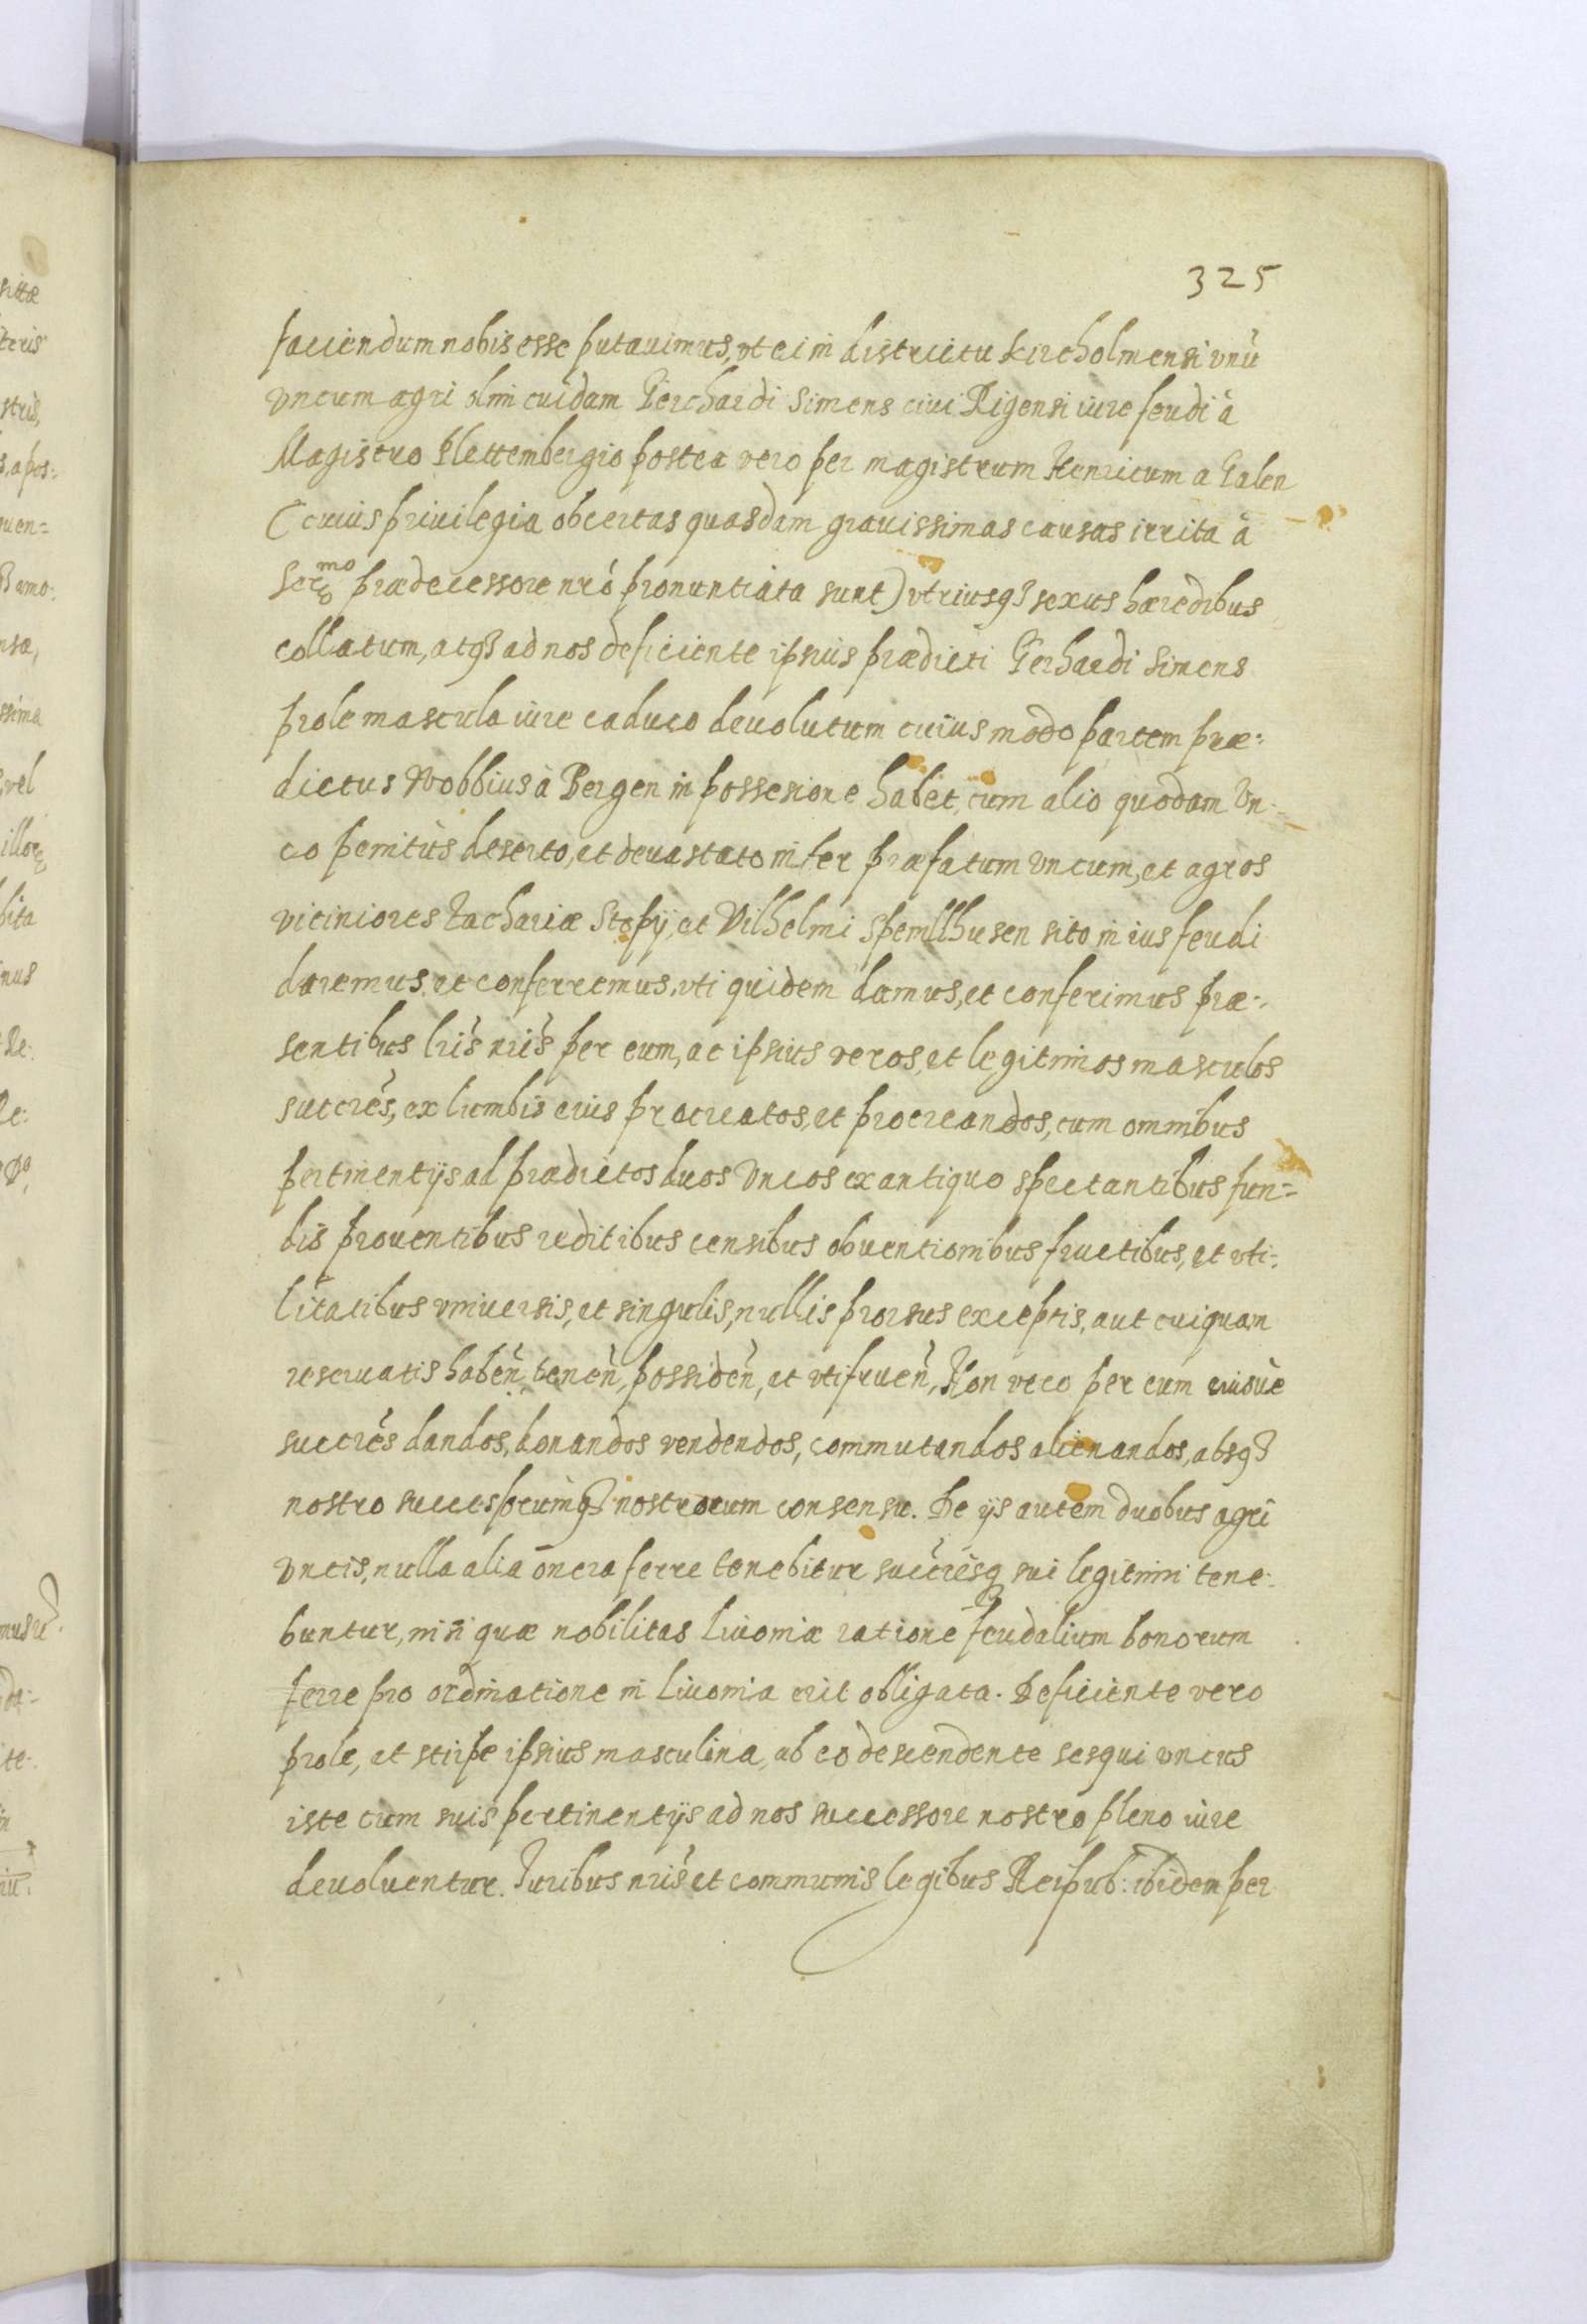 325
faciendum nobis esse putauimus, vt ei in districtu kircholmensi vnũ
vncum agri olim cuidam Gerchardi Simens ciui Rigensi iure feudi à
Magistro Plettembergio postea vero per magistrum Henricum a Galen
(cuius priuilegia ob certas quasdam grauissimas causas irrita à
Sermo prædecessore nrõ pronuntiata sunt) vtriusq3 sexus hæredibus
collatum, atq3 ad nos deficiente ipsius prædicti Gerhardi Simens
prole mascula iure caduco deuolutum cuius modo partem præ:
dictus Wobbius à Bergen in possesione habet, cum alio quodam Vn-
co penitùs deserto, et deuastato inter præfatum vncum, et agros
viciniores Zachariæ Stopij, et Vilhelmi Spemllhusen sito in ius feudi
daremus, et conferremus, vti quidem damus, et conferimus præ:
sentibus lris nris per eum, ac ipsius veros, et legitimos masculos
succrẽs, ex lumbis eius procreatos, et procreandos, cum omnibus
pertinentijs ad prædictos duos Vncos ex antiquo spectantibus fun=
dis prouentibus reditibus censibus obuentionibus fructibus, et vti:
litatibus vniuersis, et singulis, nullis prorsus exceptis, aut cuiquam
reseruatis habeñ, teneñ, possideñ, et vtifrueñ, Non vero per eum eiusue
succrẽs dandos, donandos vendendos, commutandos alienandos, absq3
nostro successorumq3 nostrorum consensu. De ijs autem duobus agri
vncis, nulla alia onera ferre tenebitur succrẽsq3 sui legitimi tene:
buntur, nisi quæ nobilitas Liuoniæ ratione feudalium bonorum
ferre pro ordinatione in Liuonia erit obligata. Deficiente vero
prole, et stirpe ipsius masculina, ab eo descendente sesqui vncus
iste cum suis pertinentijs ad nos successore nostro pleno iure
deuoluentur. Iuribus nris et communis legibus Reipub: ibidem per